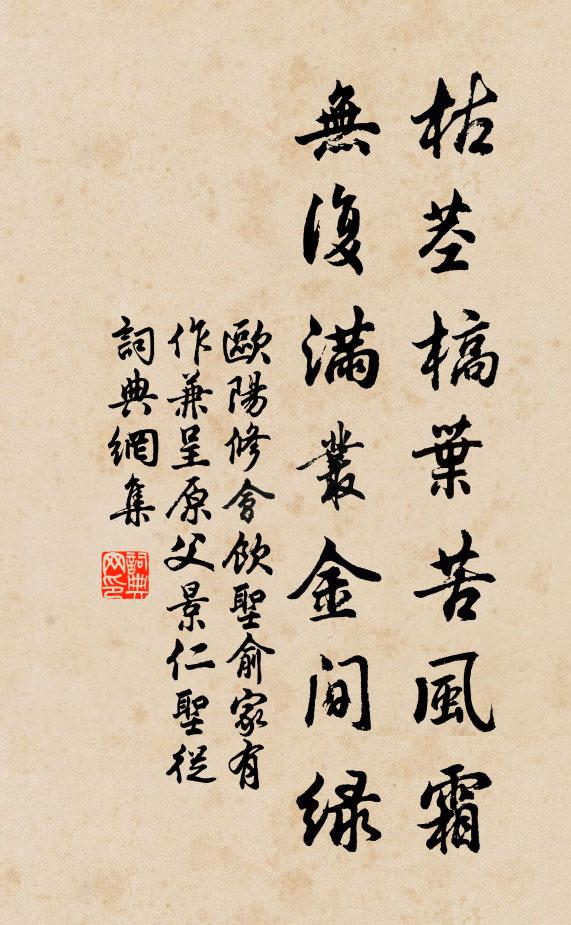 枯莖槁葉苦風霜
無復滿叢金間綠
歐陽修會飲聖俞家有
作兼呈原父景仁聖從
詞典網集
詞典網印